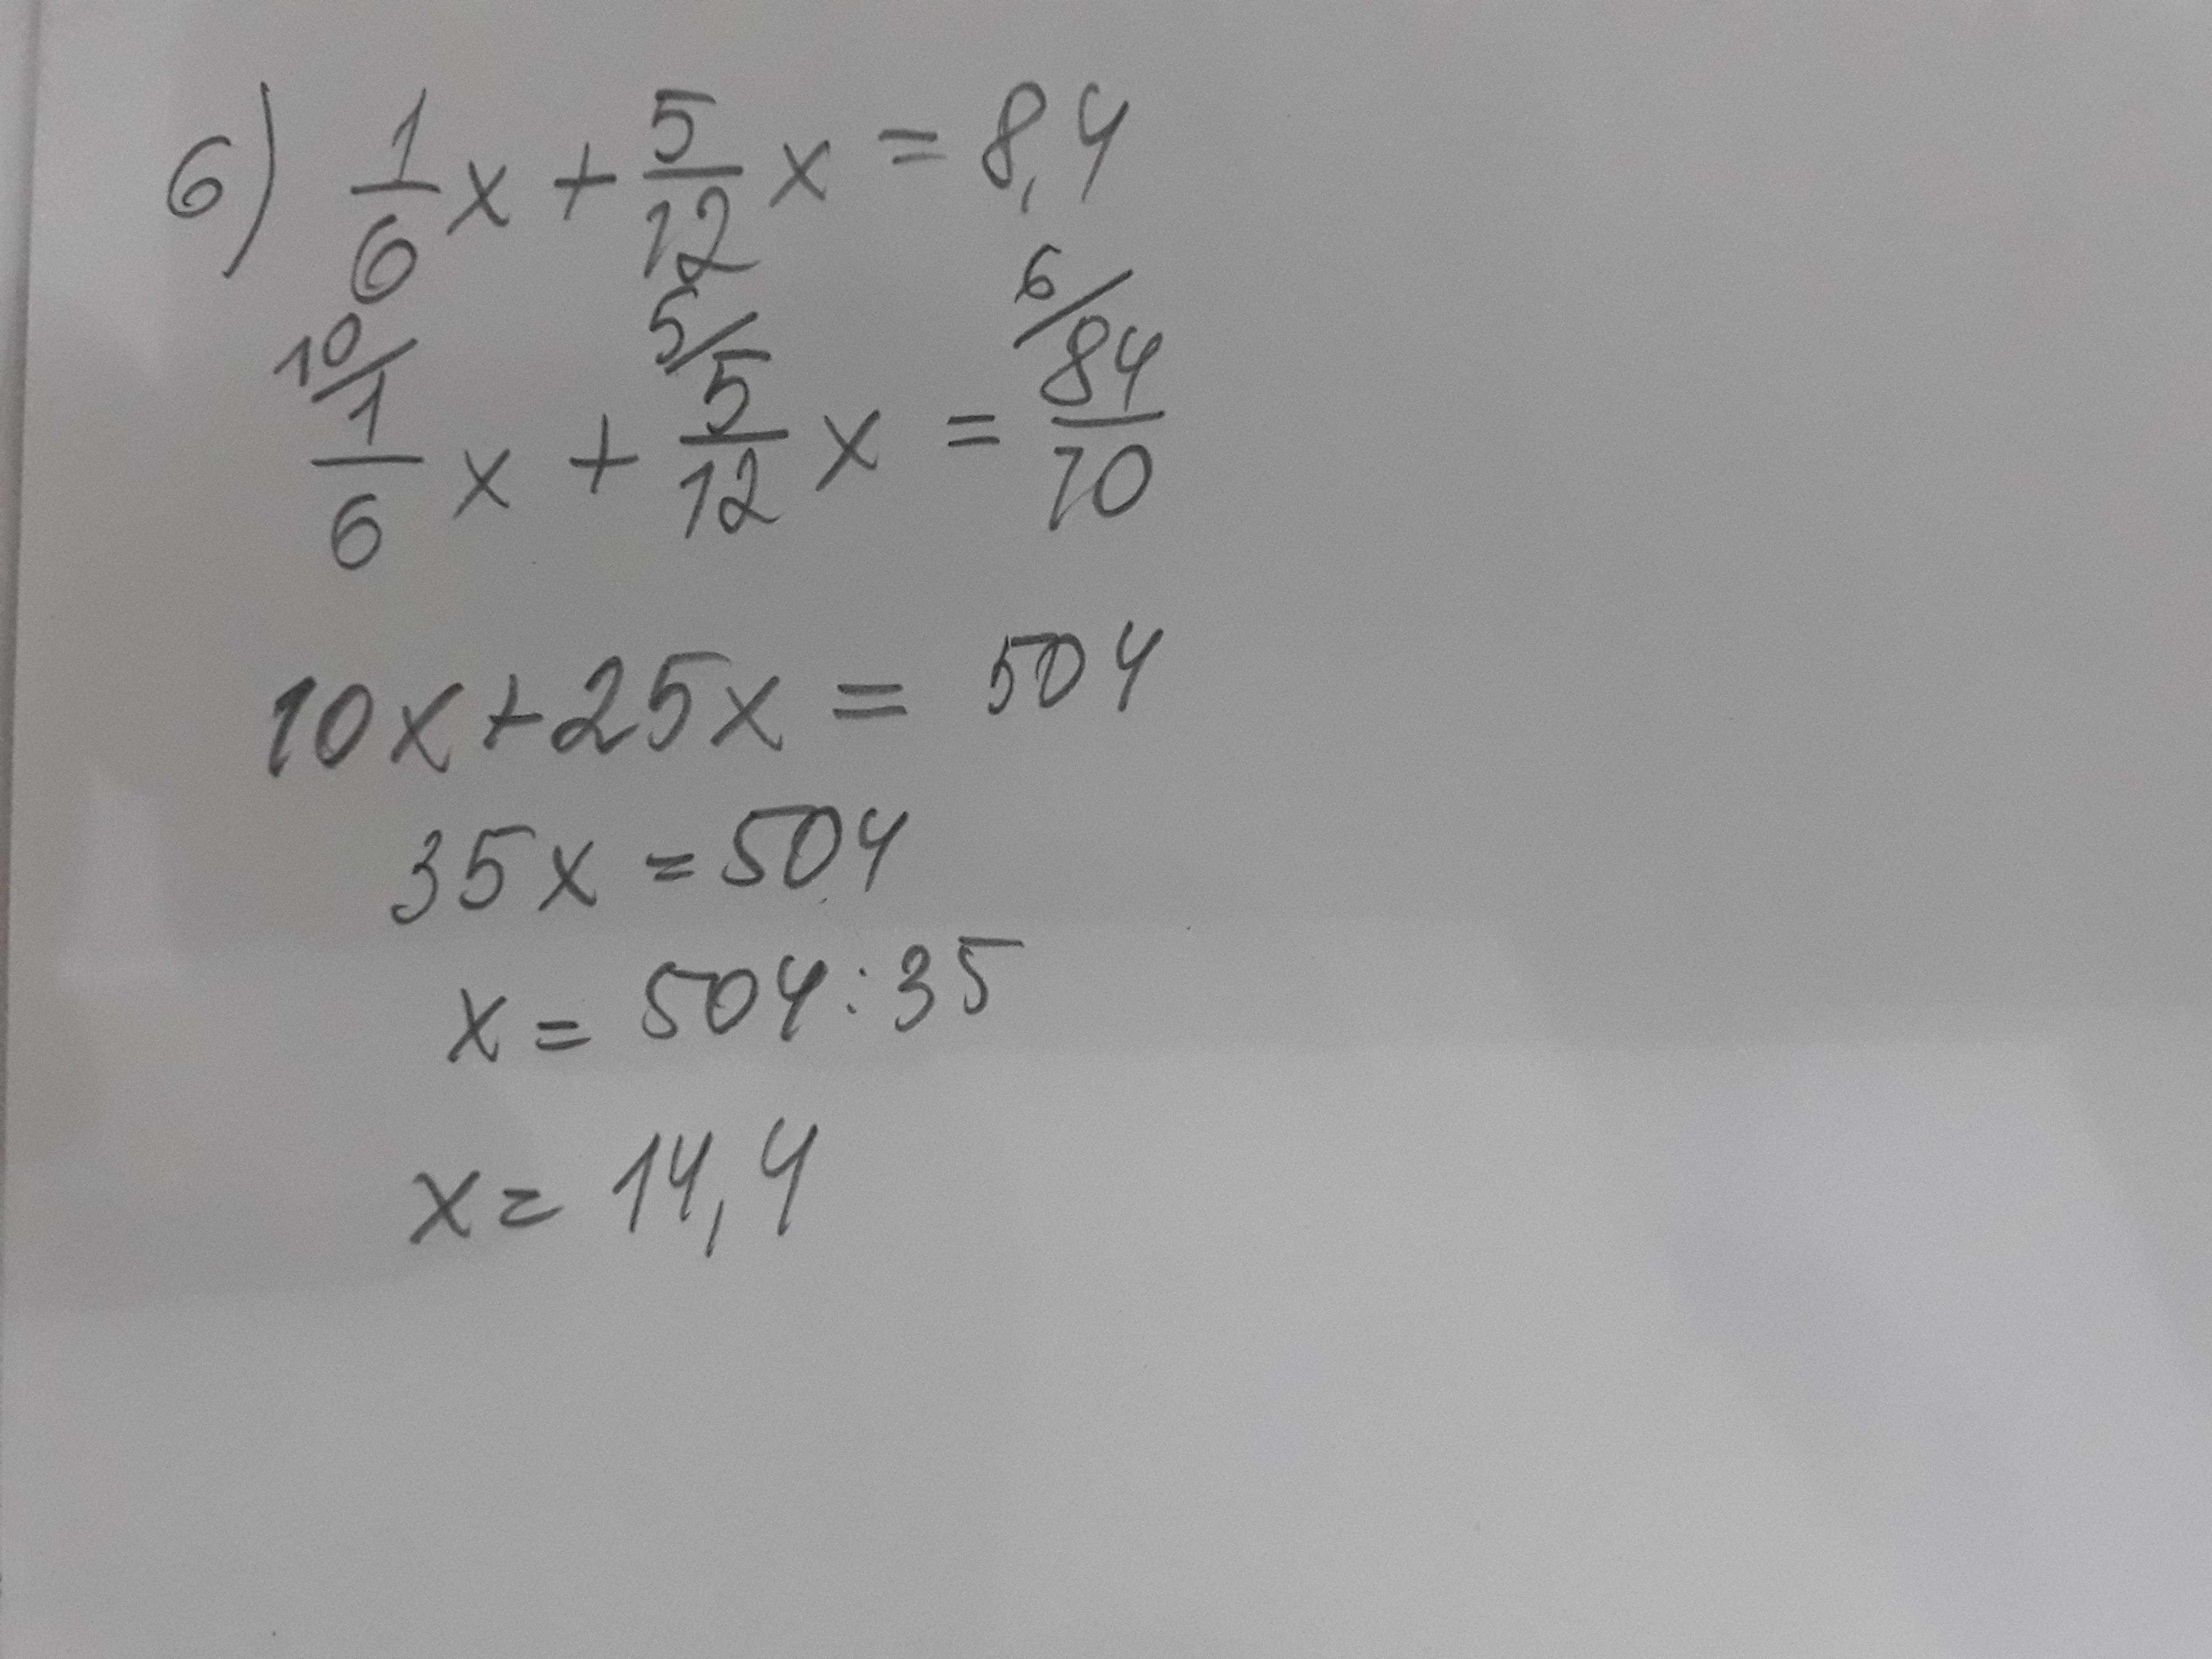 6) 1/6 x + 5/12 x = 8,4
10/ 5/ 6/
1/6 x + 5/12 x = 84/10
10x + 25x = 504
35x = 504
x = 504 : 35
x = 14,4